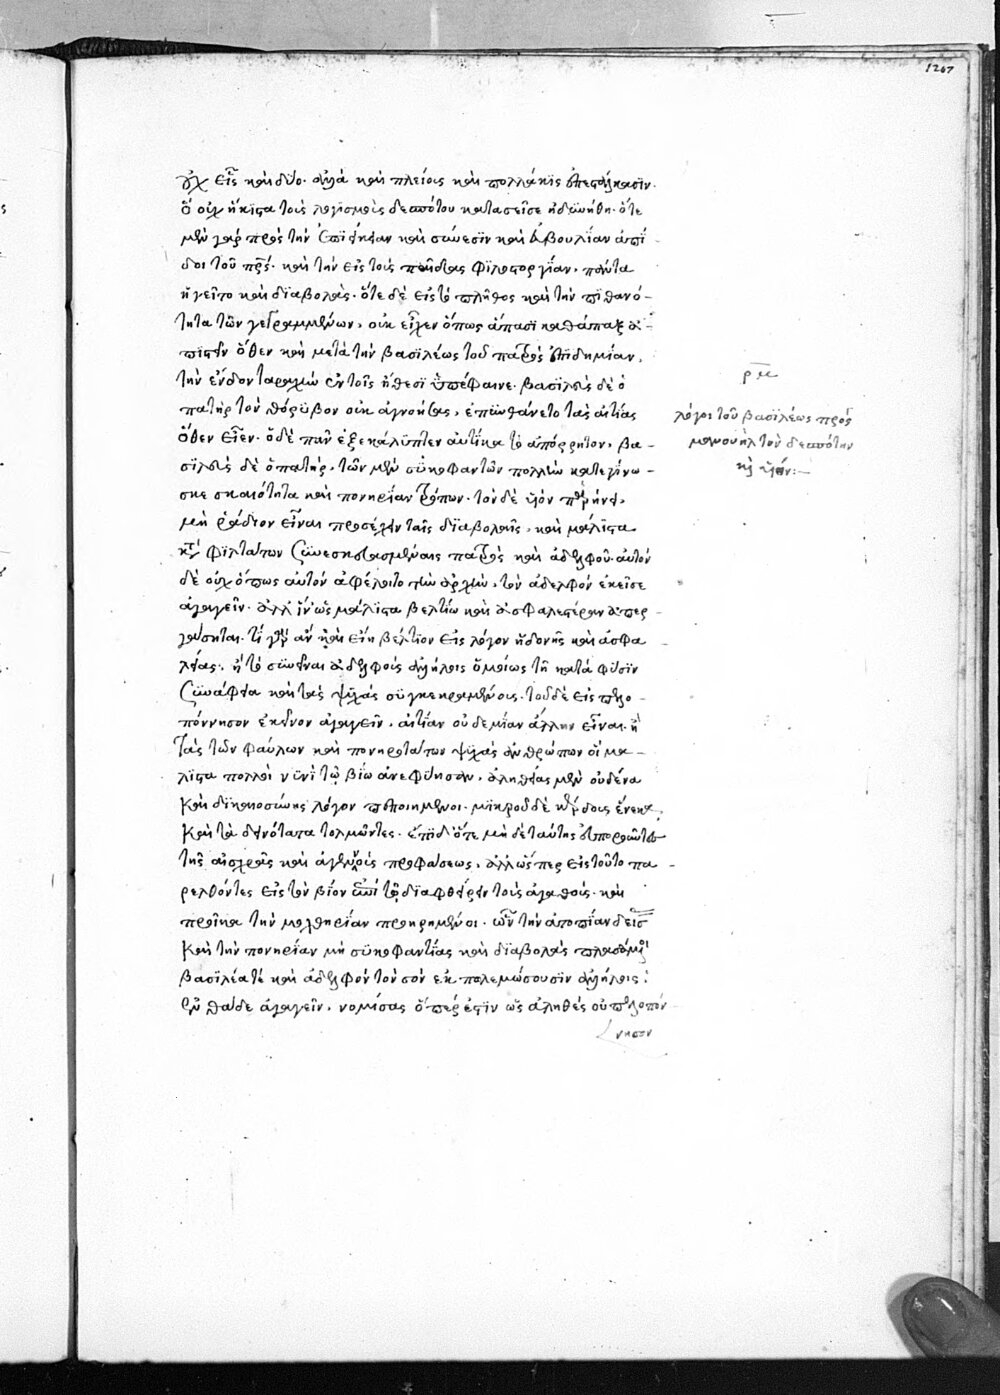 1207
οὐχ εἷς καὶ δύο· ἀλλὰ καὶ πλείους καὶ πολλάκις ἐπεστάλκασιν·
ὃ οὐχ ἥκιστα τοὺς λογισμοὺς δεσπότου κατασεῖσε ἠδυνήθη· ὅτε
μὲν γὰρ πρὸς τὴν ἐπιείκειαν καὶ σύνεσιν καὶ εὐβουλίαν ἀπί-
δοι τοῦ πατρός· καὶ τὴν εἰς τοὺς παῖδας φιλοστοργίαν, πάντα
ἡγεῖτο καὶ διαβολάς· ὅτε δὲ εἰς τὸ πλῆθος καὶ τὴν πιθανό-
τητα τῶν γεγραμμένων, οὐκ εἶχεν ὅπως ἅπασι καθάπαξ ἀ-
πιστεῖν ὅθεν καὶ μετὰ τὴν βασιλέως τοῦ πατρὸς ἐπιδημίαν,
τὴν ἔνδον ταραχὴν ἐν τοῖς ἤθεσι ὑπέφαινε· βασιλεὺς δὲ ὁ
πατὴρ τὸν θόρυβον οὐκ ἀγνοήσας, ἐπυνθάνετο τὰς αἰτίας
ὅθεν εἶεν· ὁ δὲ πᾶν ἐξεκάλυπτεν αὐτίκα τὸ ἀπόρρητον, βα-
σιλεὺς δὲ ὁ πατὴρ, τῶν μὲν συκοφαντῶν πολλὴν κατεγίνω-
σκε σκαιότητα καὶ πονηρίαν τρόπων· τὸν δὲ υἱὸν παρήνει,
μὴ ῥάδιον εἶναι προσέχειν ταῖς διαβολαῖς, καὶ μάλιστα
κατὰ φιλτάτων συνεσκευασμέναις πατρὸς καὶ ἀδελφοῦ· αὐτὸν
δὲ οὐχ ὅπως αὐτὸν ἀφέλοιτο τὴν ἀρχὴν, τὸν ἀδελφὸν ἐκεῖσε
ἀγαγεῖν· ἀλλ' ἵν' ὡς μάλιστα βελτίω καὶ ἀσφαλεστέραν ἀπερ
γάσηται· τί γὰρ ἂν καὶ εἴη βέλτιον εἰς λόγον ἡδονῆς καὶ ἀσφα
λείας, ἢ τὸ συνεῖναι ἀδελφοὺς ἀλλήλοις ὁμοίως τῇ κατὰ φύσιν
συναφείᾳ καὶ τὰς ψυχὰς συγκεκραμένους· τοῦ δὲ εἰς πελο-
πόννησον ἐκεῖνον ἀγαγεῖν, αἰτίαν οὐδεμίαν ἄλλην εἶναι· ἢ
τὰς τῶν φαύλων καὶ πονηροτάτων ψυχὰς ἀνθρώπων οἳ μά-
λιστα πολλοὶ νυνὶ τῷ βίῳ ἀνεφύησαν, ἀληθείας μὲν οὐδένα
καὶ δικαιοσύνης λόγον πεποιημένοι· μικροῦ δὲ κέρδους ἕνεκα
καὶ τὰ δεινότατα τολμῶντες· ἔστι δ' ὅτε μὴ δὲ ταύτης εὐποροῦντες
τῆς αἰσχρᾶς καὶ ἀγεννοῦς προφάσεως, ἀλλ' ὥσπερ εἰς τοῦτο πα-
ρελθόντες εἰς τὸν βίον ἐπὶ τῷ διαφθείρειν τοὺς ἀγαθούς· καὶ
προῖκα τὴν μοχθηρίαν προῃρημένοι· ὧν τὴν ἀτοπίαν δείσας
καὶ τὴν πονηρίαν μὴ συκοφαντίας καὶ διαβολὰς πλασάμενοι
βασιλέα τὲ καὶ ἀδελφὸν τὸν σὸν ἐκπολεμώσουσιν ἀλλήλοις·
ἐνθάδε ἀγαγεῖν, νομίσας ὅπερ ἐστὶν ὡς ἀληθὲς οὐ πελοπόν-
νησον
ρμ
λόγοι τοῦ βασιλέως πρὸς
μανουὴλ τὸν δεσπότην
καὶ υἱόν:-